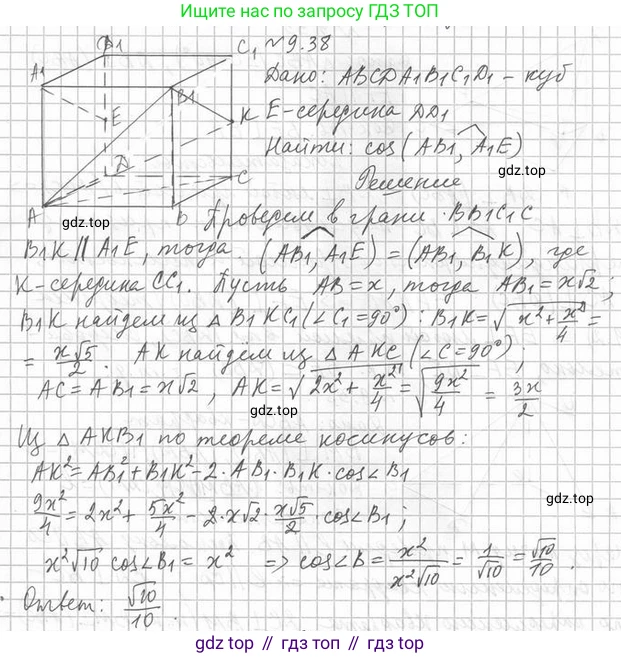 Ищите нас по запросу ГДЗ ТОП
D1
C1
№9.38
A1
B1
E
K
D
C
A
B
Дано: ABCDA1B1C1D1 – куб
E-середина DD1
Найти: cos(AB1, A1E)
Решение
gdz.top
Проведем в грани BB1C1C
B1K ∥ A1E, тогда (AB1, A1E) = (AB1, B1K), где
K-середина CC1. Пусть AB = x, тогда AB1 = x√2;
B1K найдем из △ B1KC1 (∠C1 = 90°): B1K = √(x² + x²/4) =
= x√5/2. AK найдем из △ AKC (∠C = 90°);
AC = AB1 = x√2, AK = √(2x² + x²/4) = √(9x²/4) = 3x/2
gdz.top
Из △ AKB1 по теореме косинусов:
AK² = AB1² + B1K² - 2·AB1·B1K·cos∠B1
9x²/4 = 2x² + 5x²/4 - 2·x√2·x√5/2·cos∠B1;
x²√10 cos∠B1 = x² ⇒ cos∠B = x²/x²√10 = 1/√10 = √10/10.
gdz.top
Ответ: √10/10.
gdz top // гдз топ // gdz.top